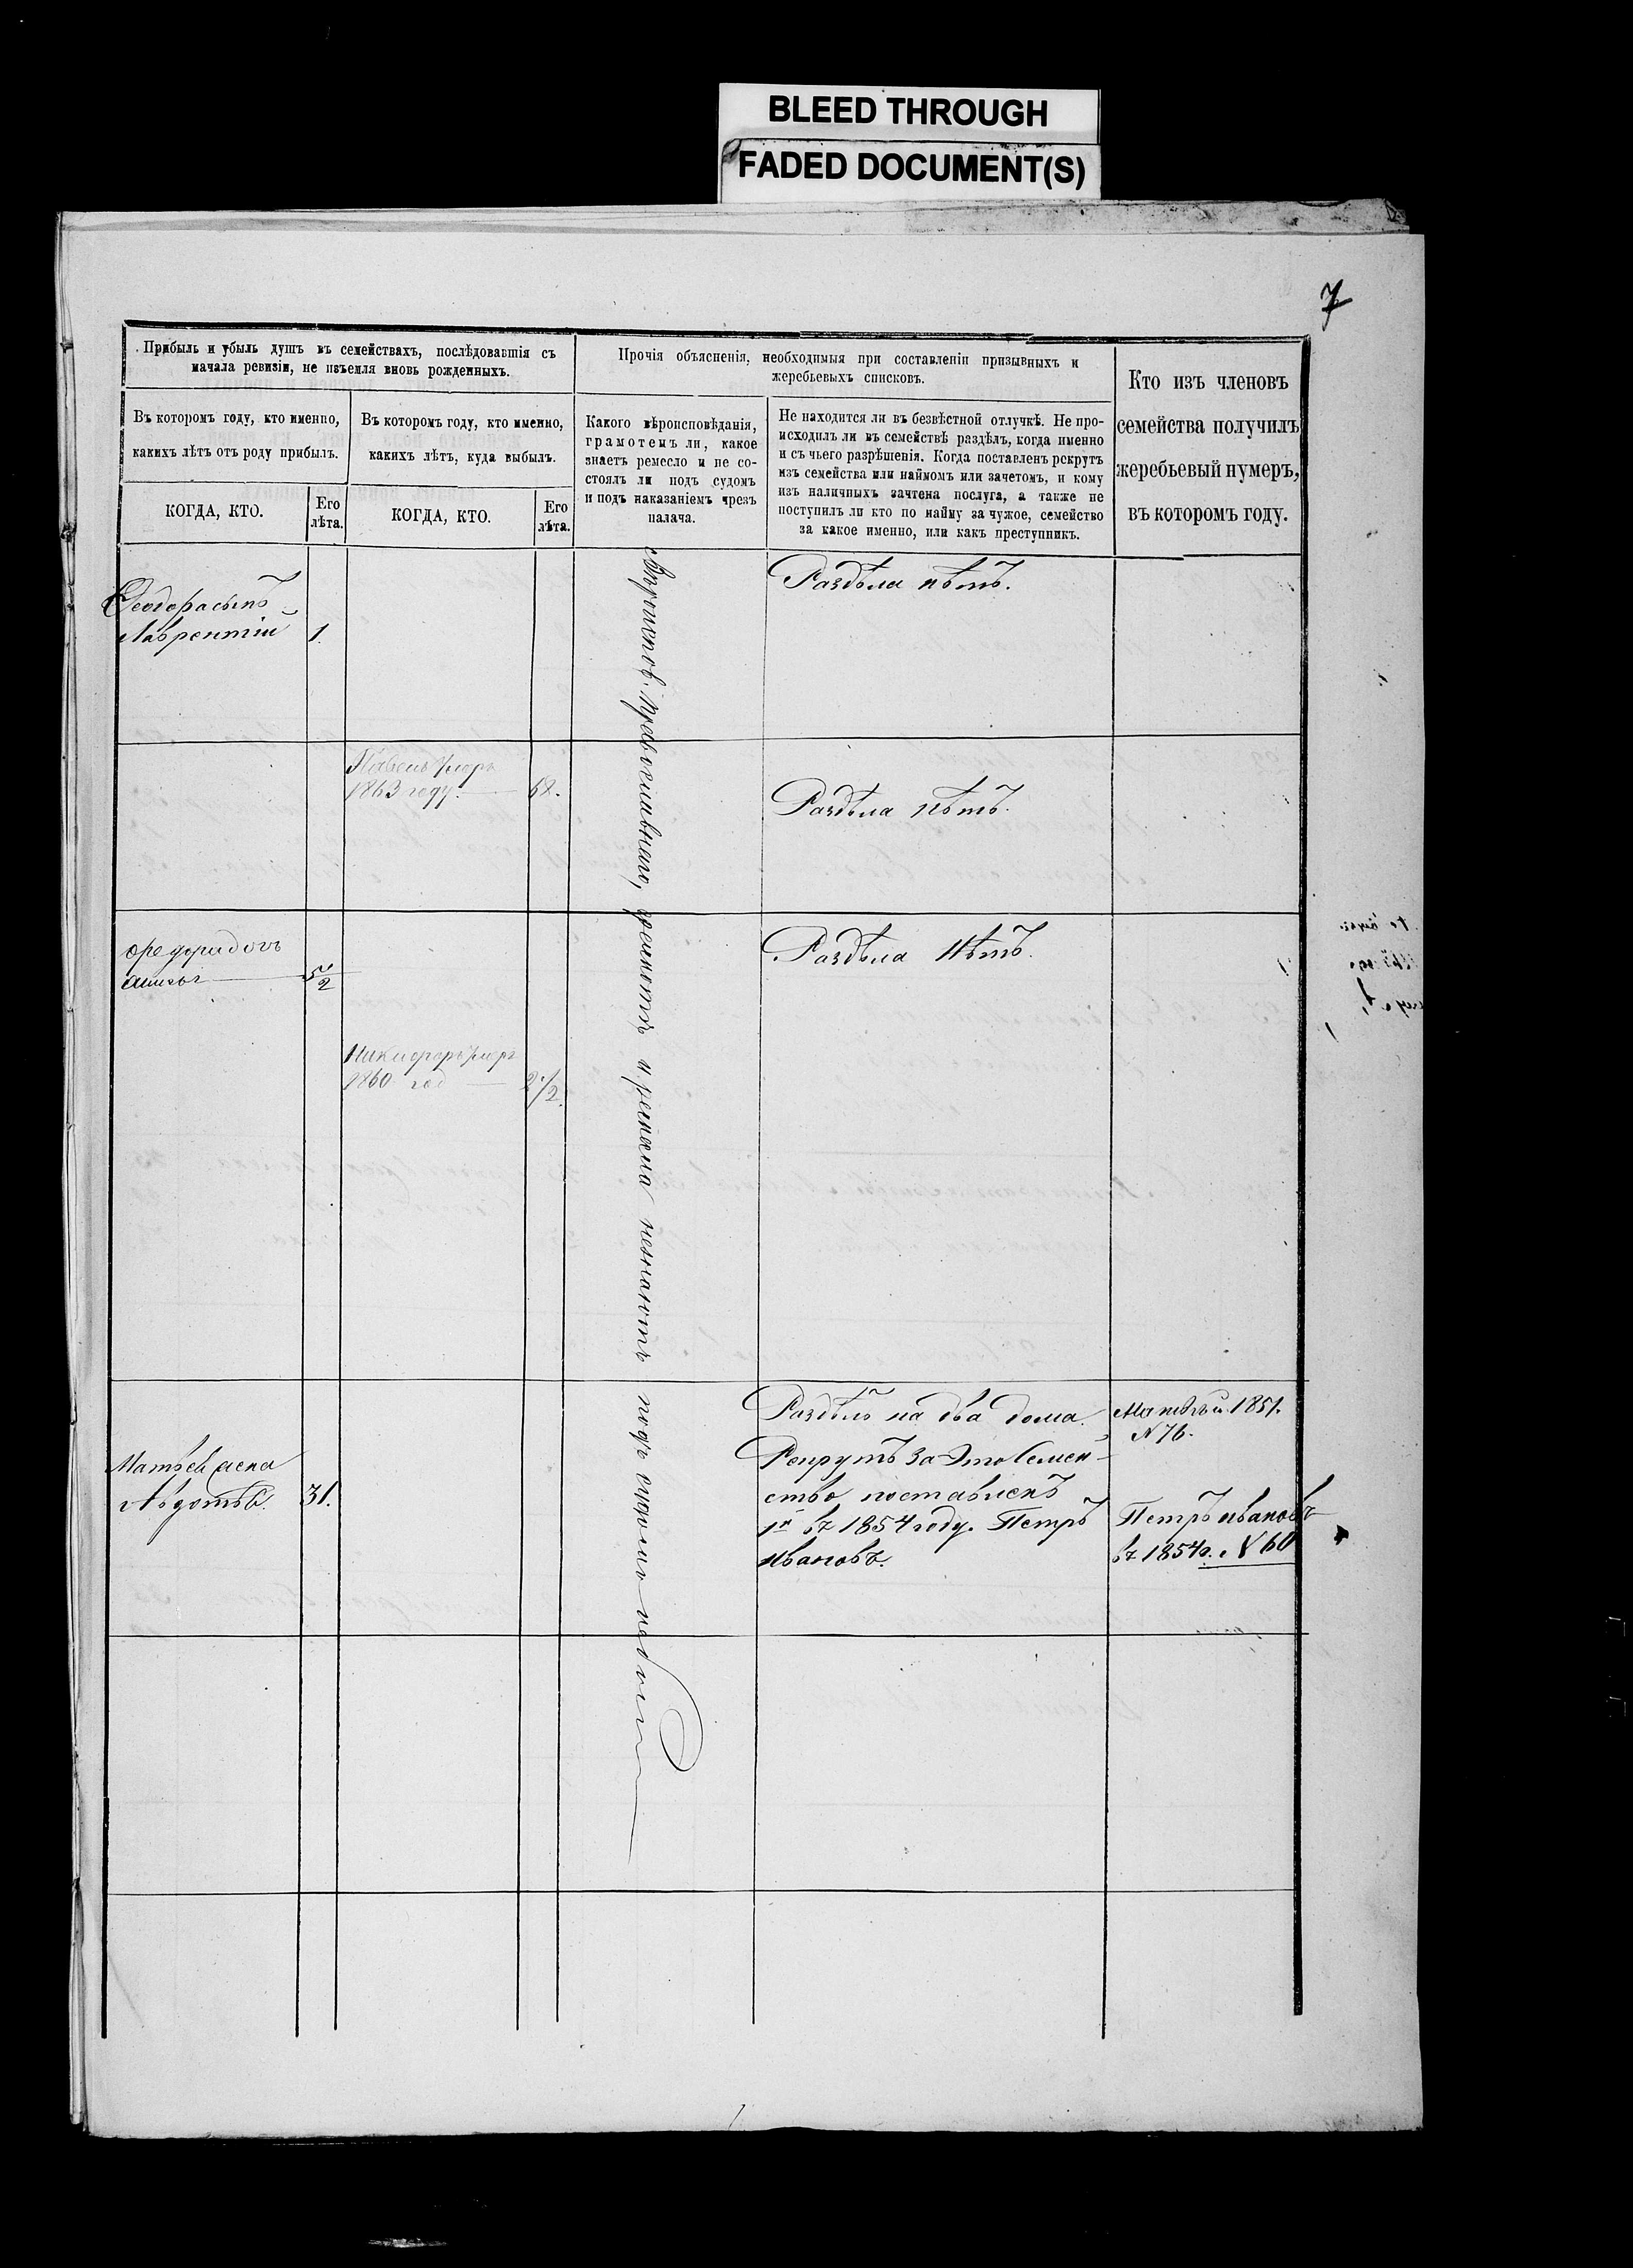 BLEED THROUGH
FADED DOCUMENT(S)
7
Прибыль и убыль душъ въ семействахъ, послѣдовавшія съ
начала ревизіи, не изъемля вновь рожденныхъ.
Прочія объясненія, необходимыя при составленіи призывныхъ и
жеребьевыхъ списковъ.
Кто изъ членовъ
семейства получилъ
жеребьевый нумеръ,
въ которомъ году.
Въ которомъ году, кто именно,
какихъ лѣтъ отъ роду прибылъ.
Въ которомъ году, кто именно,
какихъ лѣтъ, куда выбылъ.
Какого вѣроисповѣданія,
грамотенъ ли, какое
знаетъ ремесло и не со-
стоялъ ли подъ судомъ
и подъ наказаніемъ чрезъ
палача.
Не находится ли въ безвѣстной отлучкѣ. Не про-
исходилъ ли въ семействѣ раздѣлъ, когда именно
и съ чьего разрѣшенія. Когда поставленъ рекрутъ
изъ семейства или наймомъ или зачетомъ, и кому
изъ наличныхъ зачтена послуга, а также не
поступилъ ли кто по найму за чужое, семейство
за какое именно, или какъ преступникъ.
КОГДА, КТО.
Его
лѣта.
КОГДА, КТО.
Его
лѣта.
Ѳеодора сынъ
Лаврентій 1.
Раздѣла нѣтъ.
Павелъ умеръ
1863 году. 68.
Раздѣла нѣтъ.
Раздѣла нѣтъ.
Никифоръ умеръ
1860 год 2 1/2.
православнаго, грамотѣ и ремесла незнаютъ подъ судомъ небыли
Раздѣлъ на два дома.
Рекрутъ за Это Семей-
ство поставленъ
1й въ 1854 году. Петръ
Ивановъ.
Матвѣй 1851.
N 76.
Матвѣя жена
Авдотья. 31.
Петръ Ивановъ
въ 1854г. N 60